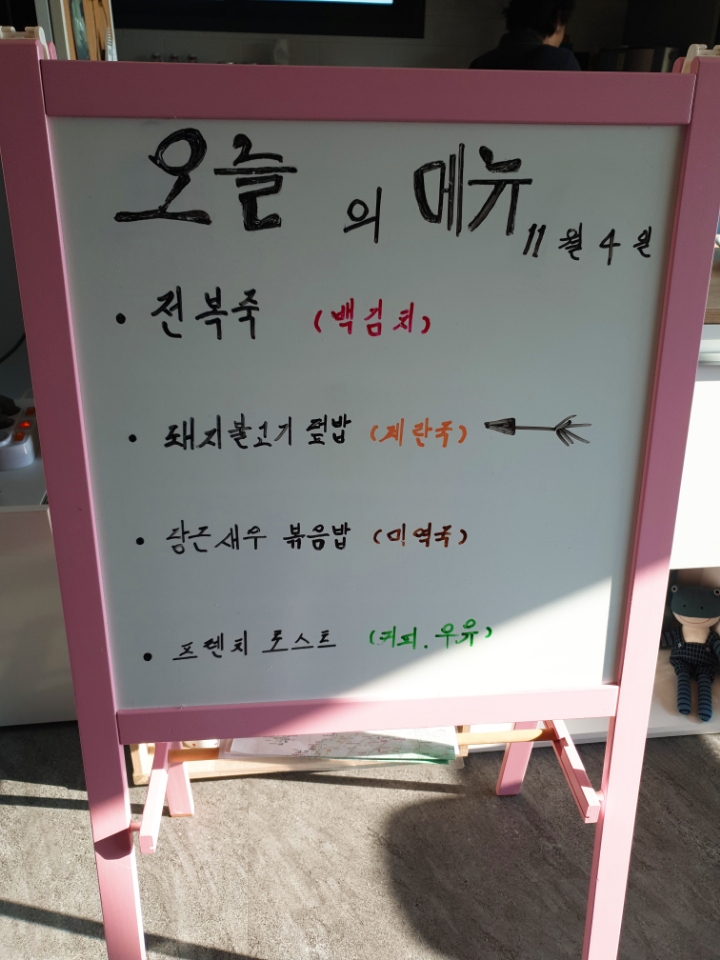 오늘 의 메뉴
11월 4일
• 전복죽 (백김치)
• 돼지불고기 덮밥 (계란국)
• 당근새우 볶음밥 (미역국)
• 프렌치 로스트 (커피. 우유)